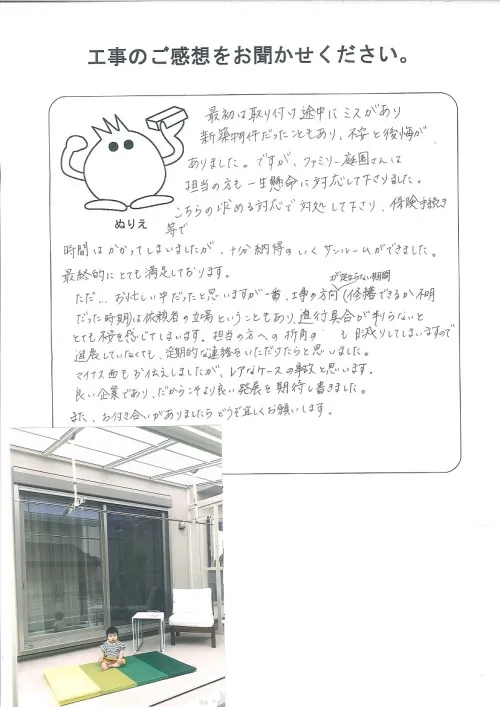 工事のご感想をお聞かせください。
最初は取り付け途中にミスがあり
新築物件だったこともあり、不安と後悔が
ありました。ですが、ファミリー庭園さんは
担当の方も一生懸命に対応して下さりました。
こちらの求める対応で対処して下さり、保険手続き
等で
ぬりえ
時間はかかってしまいましたが、十分納得のいくサンルームができました。
最終的にとても満足しております。
が定まらない期間
ただ…お忙しい中だったと思いますが一番、工事の方向(修繕できるか不明
だった時期)は依頼者の立場ということもあり、進行具合が判らないと
とても不安を感じてしまいます。担当の方への折角の も目減りしてしまいますので
進展していなくても、定期的な連絡をいただけたらと思いました。
マイナス面もお伝えしましたが、レアなケースの事故と思います。
良い企業であり、だからこそより良い発展を期待し書きました。
また、お付き合いがありましたらどうぞ宜しくお願いします。